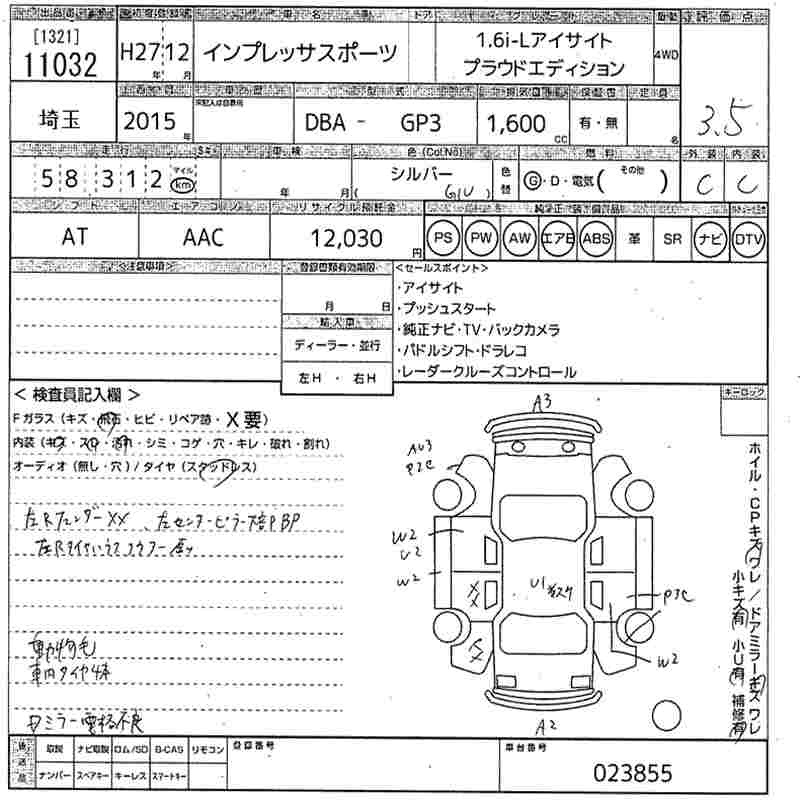 [1321]
11032
H27 年 12 月
インプレッサスポーツ
ドア
1.6i-Lアイサイト
プラウドエディション
4WD
評価点
3.5
埼玉
2015 年
DBA - GP3
1,600 cc
有・無
定員
名
走行
車検
色 (Col.No)
燃料
外装
内装
58312
マイル
km
年 月
シルバー
( G1U )
色替
G・D・電気(その他 )
C
C
シフト
エアーコン
リサイクル預託金
AT
AAC
12,030 円
PS PW AW エアB ABS 革 SR ナビ DTV
<注意事項>
登録書類有効期限
月 日
輸入車
ディーラー・並行
左H ・ 右H
<セールスポイント>
・アイサイト
・プッシュスタート
・純正ナビ・TV・バックカメラ
・パドルシフト・ドラレコ
・レーダークルーズコントロール
キーロック
<検査員記入欄>
Fガラス(キズ・飛石・ヒビ・リペア跡・X要)
内装(キズ・スレ・汚れ・シミ・コゲ・穴・キレ・破れ・割れ)
オーディオ(無し・穴)/タイヤ(スタッドレス)
左Rフェンダー XX 、左センターピラー
動物毛
車内タイヤ4本
ミラー電格不良
A3
AU3
P2C
W2
U2
W2
XX
U1
P3C
W2
A2
ホイル・CPキズワレ/ドアミラーキズワレ
小キズ有 小U有 補修有
後送品
取説 ナビ取説 ロム/SD B-CAS リモコン
ナンバー スペアキー キーレス スマートキー
登録番号
車台番号
023855